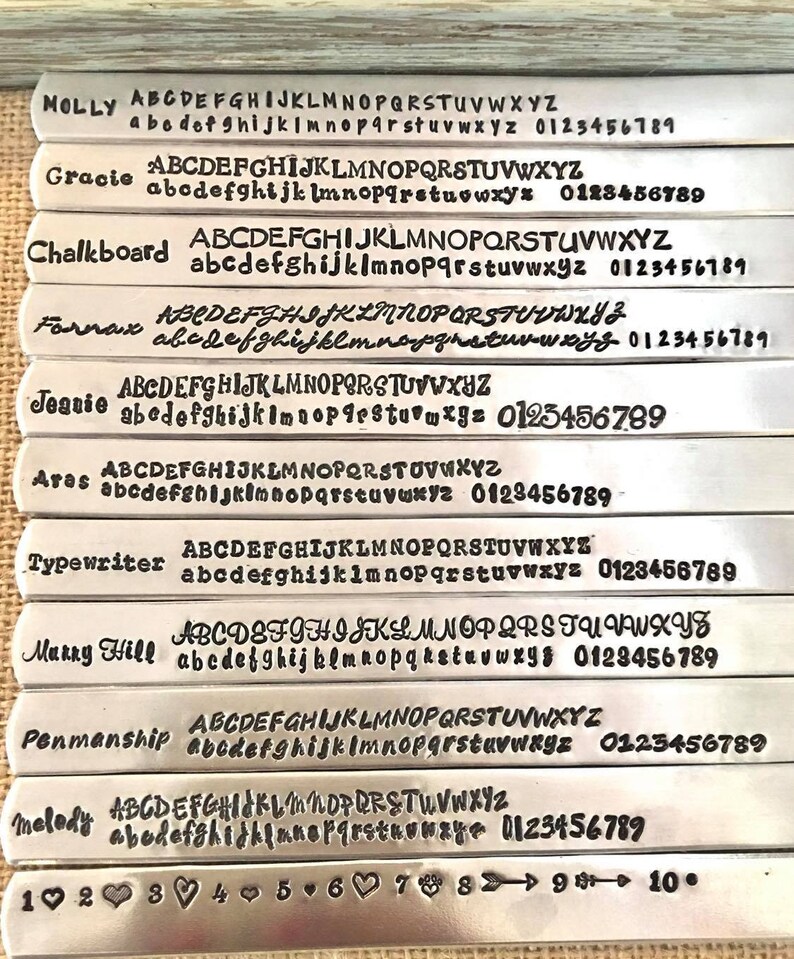 MOLLY ABCDEFGHIJKLMNOPQRSTUVWXYZ
abcdefghijklmnopqrstuvwxyz 0123456789
Gracie ABCDEFGHIJKLMNOPQRSTUVWXYZ
abcdefghijklmnopqrstuvwxyz 0123456789
Chalkboard ABCDEFGHIJKLMNOPQRSTUVWXYZ
abcdefghijklmnopqrstuvwxyz 0123456789
Fornax ABCDEFGHIJKLMNOPQRSTUVWXYZ
abcdefghijklmnopqrstuvwxyz 0123456789
Jeanie ABCDEFGHIJKLMNOPQRSTUVWXYZ
abcdefghijklmnopqrstuvwxyz 0123456789
Aras ABCDEFGHIJKLMNOPQRSTUVWXYZ
abcdefghijklmnopqrstuvwxyz 0123456789
Typewriter ABCDEFGHIJKLMNOPQRSTUVWXYZ
abcdefghijklmnopqrstuvwxyz 0123456789
Murry Hill ABCDEFGHIJKLMNOPQRSTUVWXYZ
abcdefghijklmnopqrstuvwxyz 0123456789
Penmanship ABCDEFGHIJKLMNOPQRSTUVWXYZ
abcdefghijklmnopqrstuvwxyz 0123456789
Melody ABCDEFGHIJKLMNOPQRSTUVWXYZ
abcdefghijklmnopqrstuvwxyz 0123456789
1 2 3 4 5 6 7 8 9 10